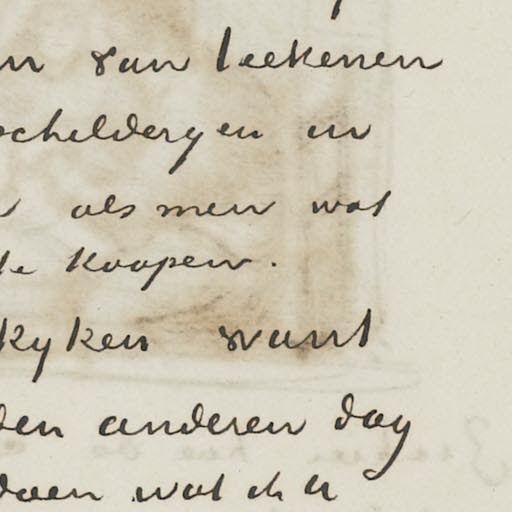 van teekenen
schilderyen en
als men wat
te koopen.
kyken want
den anderen dag
doen wat ik U